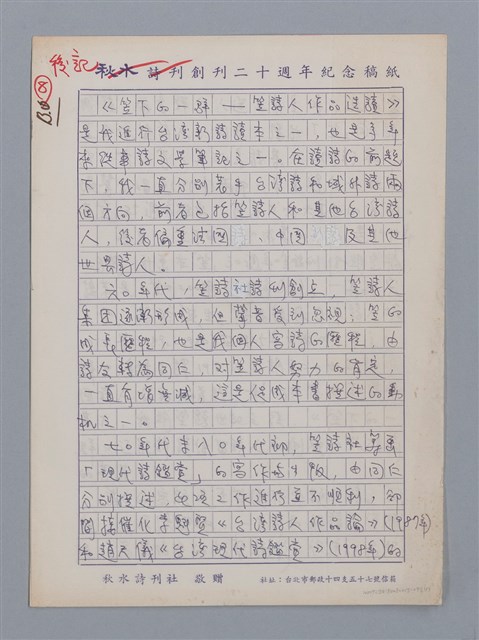 後記
⑧
秋水詩刊創刊二十週年紀念稿紙
《笠下的一群——笠詩人作品選讀》
是我進行台灣新詩讀本之一，也是多年
來從事詩文學筆記之一。在讀詩的前題
下，我一直分別著手台灣詩和域外詩兩
個方向，前者包括笠詩人和其他台灣詩
人，後者偏重法國、中國及其他
世界詩人。
六〇年代，笠詩社詩刊創立，笠詩人
集團逐漸形成，但聲音受到忽視；笠的
成長歷程，也是我個人寫詩的歷程，由
詩友轉為同仁，對笠詩人努力的肯定，
一直有增無減，這是促成本書撰述的動
機之一。
七〇年代末八〇年代初，笠詩社籌畫
「現代詩鑑賞」的寫作與出版，由同仁
分別撰述，此項工作進行並不順利，卻
間接催化李魁賢《台灣詩人作品論》(1987年)
和趙天儀《台灣現代詩鑑賞》(1998年)的
秋水詩刊社 敬贈 社址：台北市郵政十四支五十七號信箱